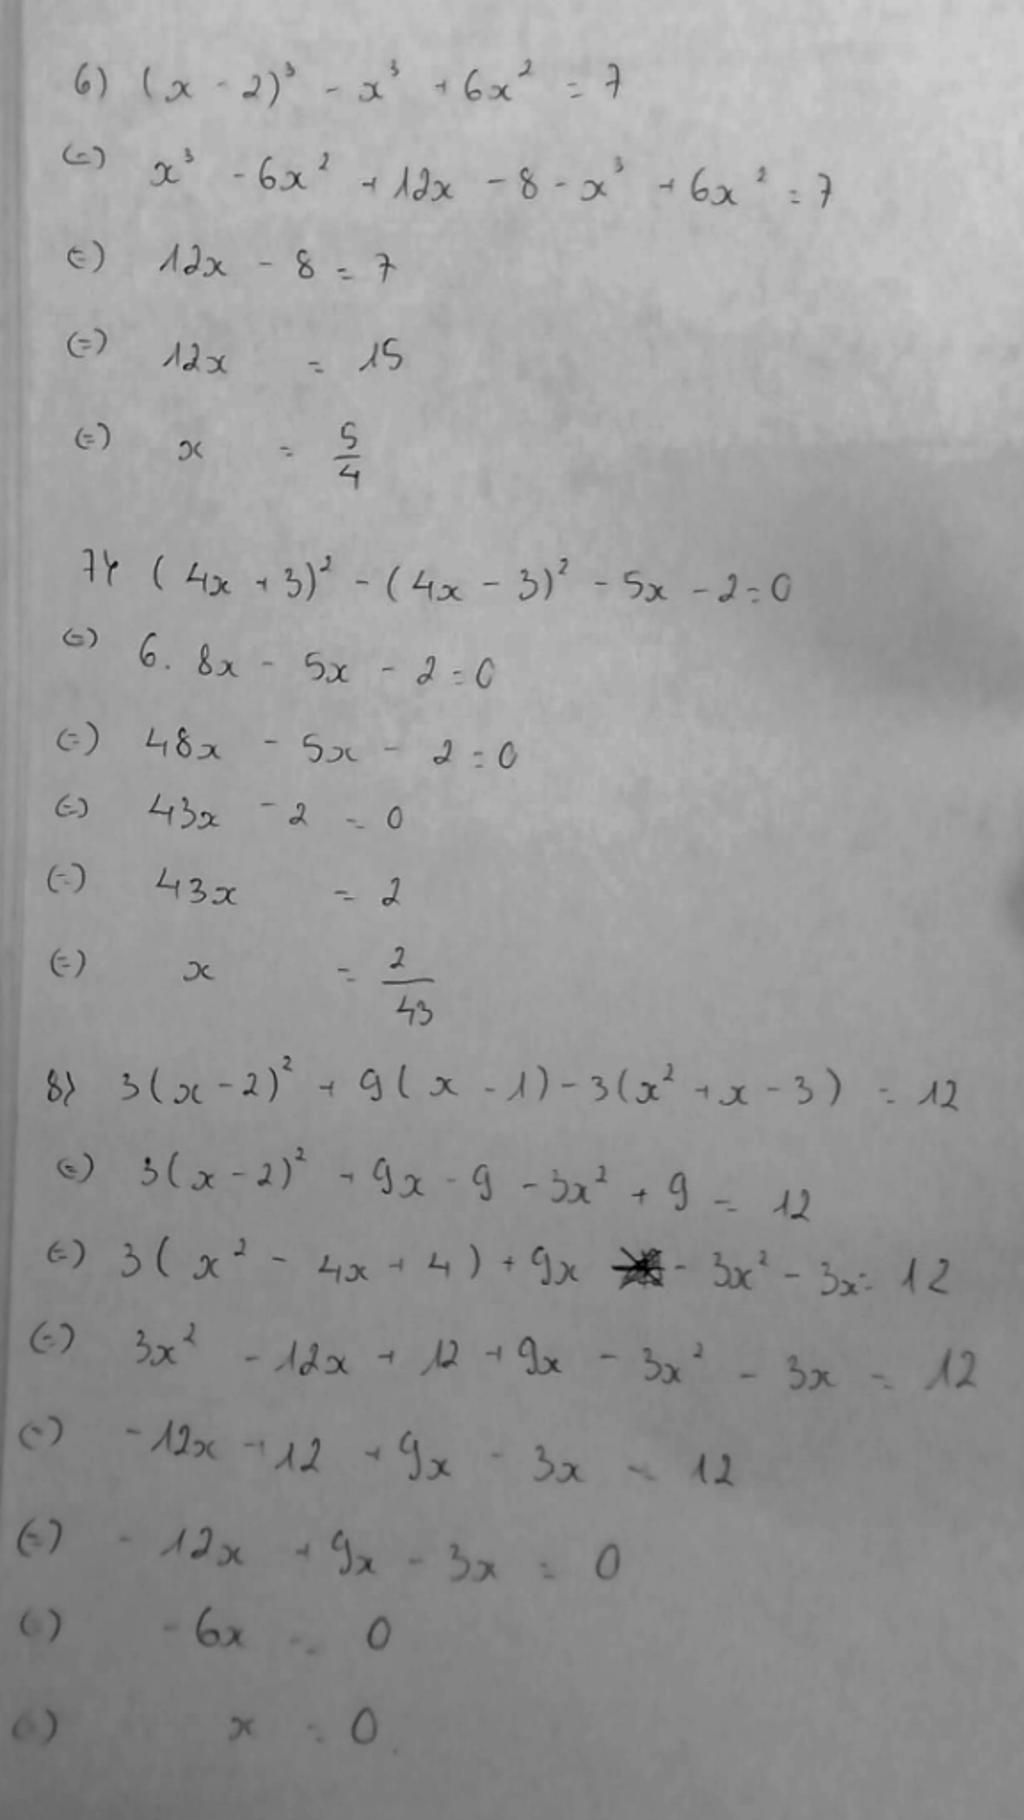 6) (x - 2)³ - x³ + 6x² = 7
(=) x³ - 6x² + 12x - 8 - x³ + 6x² = 7
(=) 12x - 8 = 7
(=) 12x = 15
(=) x = 5/4
7) (4x + 3)² - (4x - 3)² - 5x - 2 = 0
(=) 6. 8x - 5x - 2 = 0
(=) 48x - 5x - 2 = 0
(=) 43x - 2 = 0
(=) 43x = 2
(=) x = 2/43
8) 3(x - 2)² + 9(x - 1) - 3(x² + x - 3) = 12
(=) 3(x - 2)² + 9x - 9 - 3x² + 9 = 12
(=) 3(x² - 4x + 4) + 9x - 3x² - 3x = 12
(=) 3x² - 12x + 12 + 9x - 3x² - 3x = 12
(=) -12x + 12 + 9x - 3x = 12
(=) -12x + 9x - 3x = 0
(=) -6x = 0
(=) x = 0